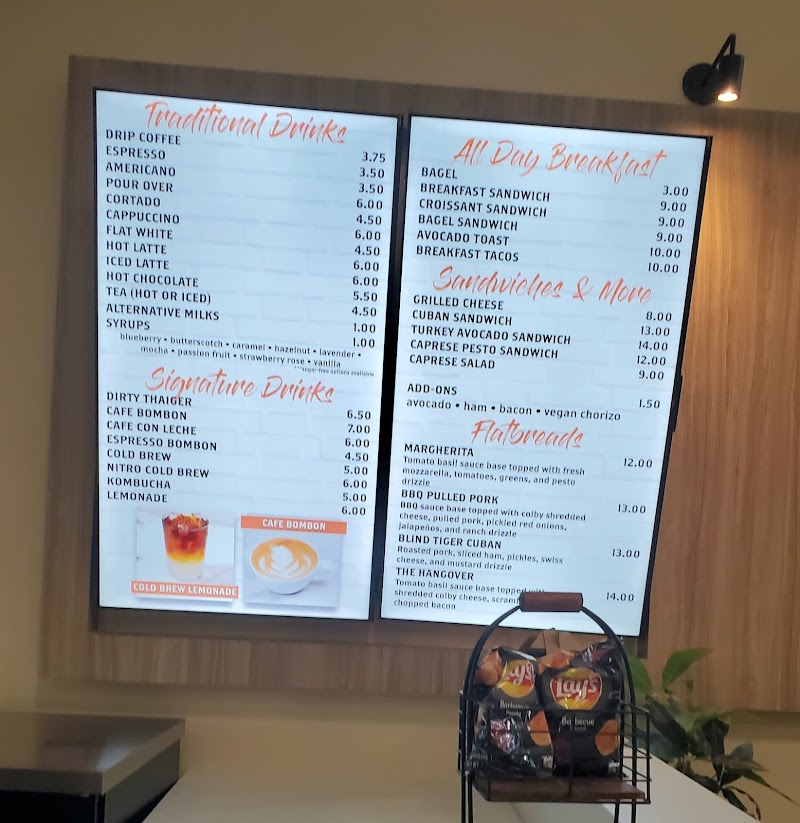 Traditional Drinks
DRIP COFFEE 3.75
ESPRESSO 3.50
AMERICANO 3.50
POUR OVER 6.00
CORTADO 4.50
CAPPUCCINO 6.00
FLAT WHITE 4.50
HOT LATTE 6.00
ICED LATTE 6.00
HOT CHOCOLATE 5.50
TEA (HOT OR ICED) 4.50
ALTERNATIVE MILKS 1.00
SYRUPS 1.00
blueberry • butterscotch • caramel • hazelnut • lavender •
mocha • passion fruit • strawberry rose • vanilla
***sugar-free options available
Signature Drinks
DIRTY THAIGER 6.50
CAFE BOMBON 7.00
CAFE CON LECHE 6.00
ESPRESSO BOMBON 4.50
COLD BREW 5.00
NITRO COLD BREW 6.00
KOMBUCHA 5.00
LEMONADE 6.00
COLD BREW LEMONADE
CAFE BOMBON
All Day Breakfast
BAGEL 3.00
BREAKFAST SANDWICH 9.00
CROISSANT SANDWICH 9.00
BAGEL SANDWICH 9.00
AVOCADO TOAST 10.00
BREAKFAST TACOS 10.00
Sandwiches & More
GRILLED CHEESE 8.00
CUBAN SANDWICH 13.00
TURKEY AVOCADO SANDWICH 14.00
CAPRESE PESTO SANDWICH 12.00
CAPRESE SALAD 9.00
ADD-ONS 1.50
avocado • ham • bacon • vegan chorizo
Flatbreads
MARGHERITA 12.00
Tomato basil sauce base topped with fresh
mozzarella, tomatoes, greens, and pesto
drizzle
BBQ PULLED PORK 13.00
BBQ sauce base topped with colby shredded
cheese, pulled pork, pickled red onions,
jalapeños, and ranch drizzle
BLIND TIGER CUBAN 13.00
Roasted pork, sliced ham, pickles, swiss
cheese, and mustard drizzle
THE HANGOVER 14.00
Tomato basil sauce base topped with
shredded colby cheese, scram
chopped bacon
Lay's
Barbecue
Lay's
Barbecue